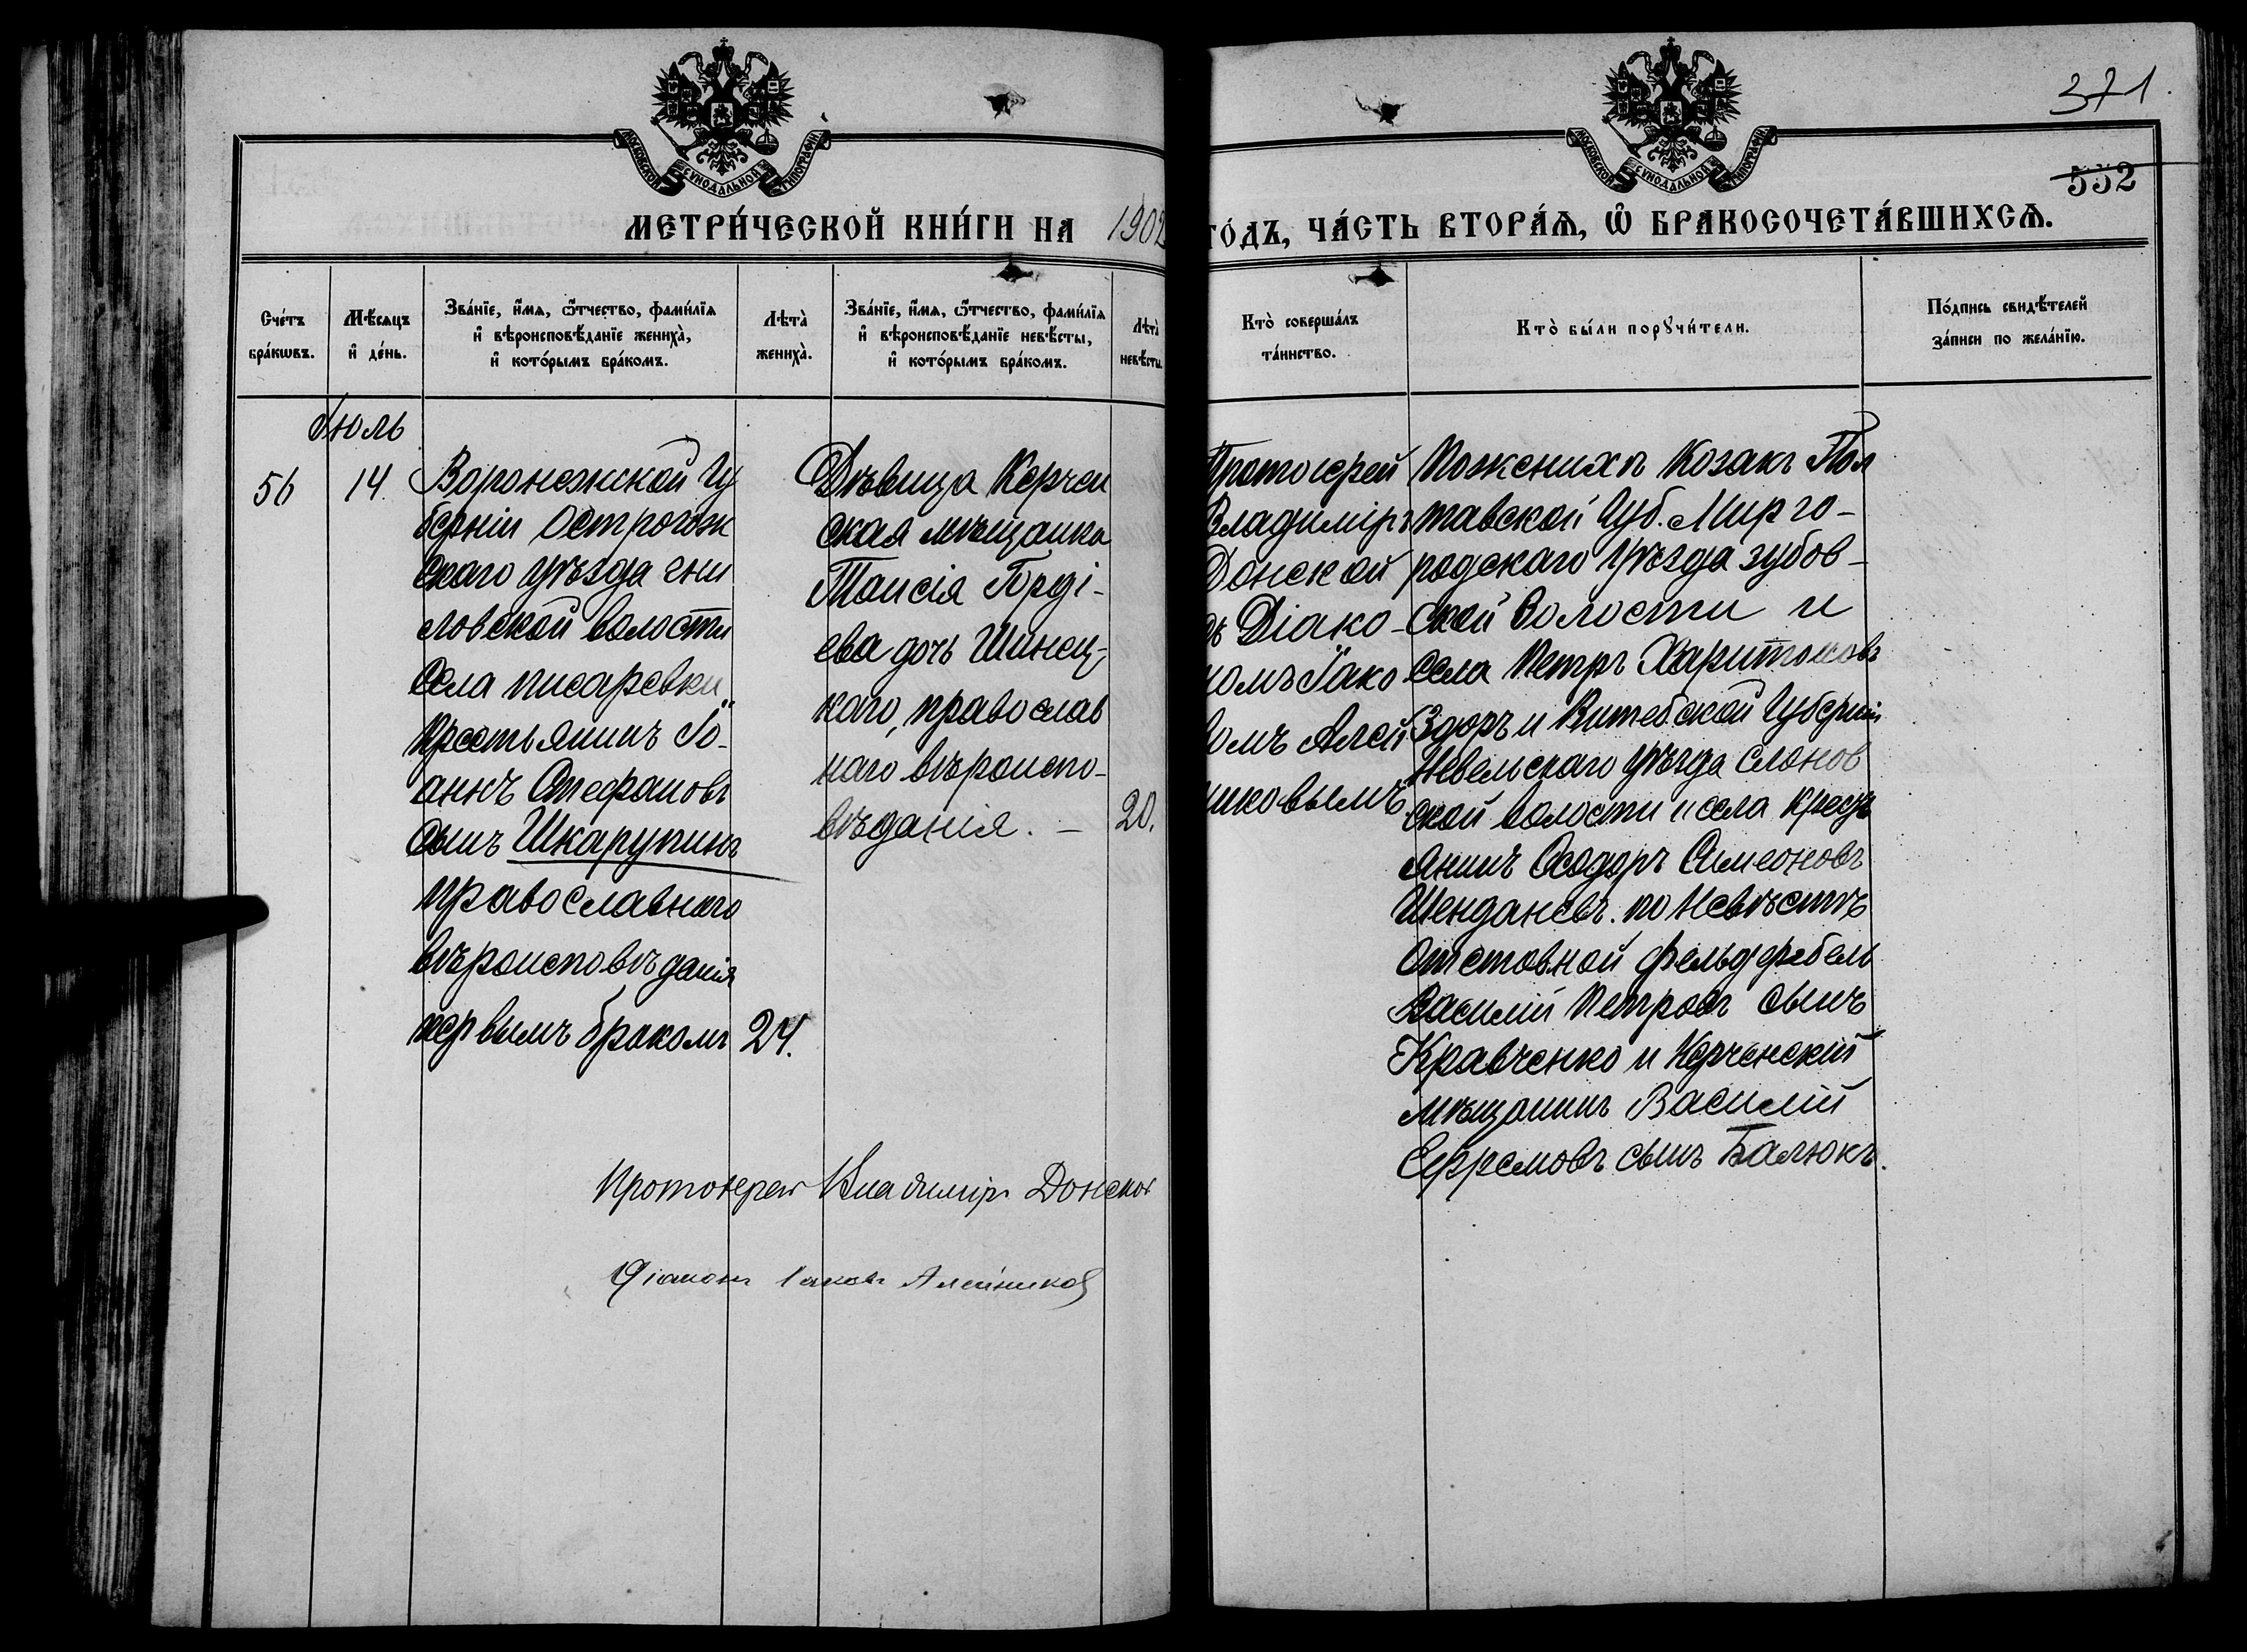 371.
552
МОСКОВСКОЙ СѴНОДАЛЬНОЙ ТИПОГРАФІИ
МОСКОВСКОЙ СѴНОДАЛЬНОЙ ТИПОГРАФІИ
МЕТРИ́ЧЕСКОЙ КНИ́ГИ НА 1902
ГО́ДЪ, ЧА́СТЬ ВТОРА́Ѧ, Ѽ БРАКОСОЧЕТА́ВШИХСѦ.
Сче́тъ
бра́кωвъ.
Мѣ́сяцъ
и҆ де́нь.
Зва́нїе, и҆́мѧ, ѻ҆́тчество, фами́лїѧ
и҆ вѣроисповѣ́данїе жениха̀,
и҆ кото́рымъ бра́комъ.
Лѣта̀
жениха̀.
Зва́нїе, и҆́мѧ, ѻ҆́тчество, фами́лїѧ
и҆ вѣроисповѣ́данїе невѣ́сты,
и҆ кото́рымъ бра́комъ.
Лѣта̀
невѣ́сты.
Кто̀ соверша́лъ
та́инство.
Кто̀ бы́ли порꙋчи́тели.
По́дпись свидѣ́телей
за́писи по жела́нїю.
Іюль
56
14.
Воронежской Гу
берніи Острогож
скаго уѣзда гни
ловской волости
Села писаревки
Крестьянинъ Іо-
аннъ Стефановъ
сынъ Шкарупинъ
православнаго
вѣроисповѣданія
первымъ бракомъ
24.
Дѣвица Керчен
ская мѣщанка
Таисія Горді-
ева дочь Шинец-
каго, православ
наго вѣроиспо-
вѣданія. —
20.
Протоіерей
Владиміръ
Донской
съ Діако-
номъ Іако
вомъ Алей
никовымъ
По женихѣ Козакъ Пол
тавской Губ. Мирго-
родскаго Уѣзда зубов-
ской Волости и
села Петръ Харитоновъ
Здоръ и Витебской Губерніи
Невельскаго уѣзда Слонов
ской волости и села крест
янинъ Ѳеодоръ Симеоновъ
по Невѣстѣ
Отставной фельдфебель
Василій Петровъ сынъ
Кравченко и Керченскій
мѣщанинъ Василій
Ефремовъ сынъ Балюкъ.
Протоіерей Владиміръ Донской
Діаконъ Іаковъ Алейников